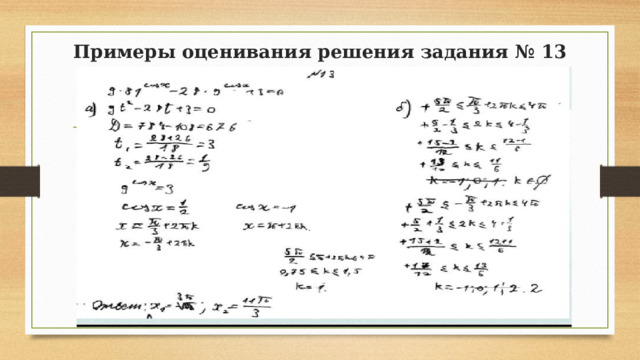 Примеры оценивания решения задания № 13
№13
9·81^cosx − 28·9^cosx + 3 = 0
а) 9t² − 28t + 3 = 0
D = 784 − 108 = 676
t₁ = (28+26)/18 = 3
t₂ = (28−26)/18 = 1/9
9^cosx = 3
cosx = 1/2
cosx = −1
x = π/3 + 2πk
x = π + 2πk.
x = −π/3 + 2πk
5π/2 ≤ π + 2πk ≤ 4π
0,75 ≤ k ≤ 1,5
k = 1.
Ответ: x₁ = 3π ; x₂ = 11π/3
б) 5π/2 ≤ π/3 + 2πk ≤ 4π
5/2 − 1/3 ≤ 2k ≤ 4 − 1/3
(15−2)/12 ≤ k ≤ (12−1)/6
13/12 ≤ k ≤ 11/6
k = −1; 0; 1. k ∈ ∅
5π/2 ≤ −π/3 + 2πk ≤ 4π
5/2 + 1/3 ≤ 2k ≤ 4 + 1/3
(15+2)/12 ≤ k ≤ (12+1)/6
17/12 ≤ k ≤ 13/6
k = −1, 0, 1, 2. 2